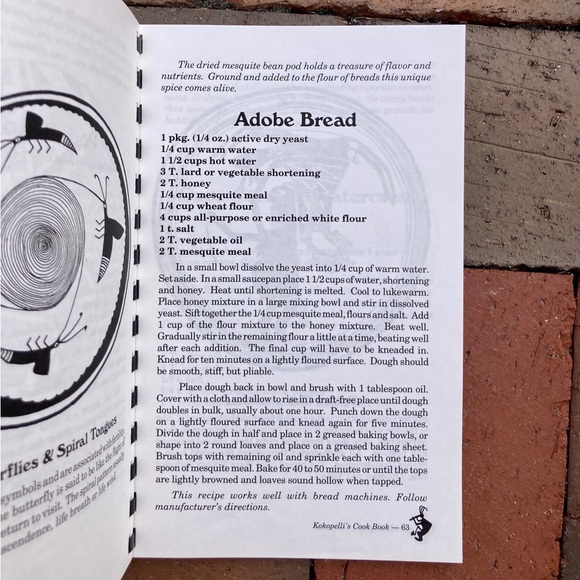 The dried mesquite bean pod holds a treasure of flavor and
nutrients. Ground and added to the flour of breads this unique
spice comes alive.
Adobe Bread
1 pkg. (1/4 oz.) active dry yeast
1/4 cup warm water
1 1/2 cups hot water
3 T. lard or vegetable shortening
2 T. honey
1/4 cup mesquite meal
1/4 cup wheat flour
4 cups all-purpose or enriched white flour
1 t. salt
2 T. vegetable oil
2 T. mesquite meal
In a small bowl dissolve the yeast into 1/4 cup of warm water.
Set aside. In a small saucepan place 1 1/2 cups of water, shortening
and honey. Heat until shortening is melted. Cool to lukewarm.
Place honey mixture in a large mixing bowl and stir in dissolved
yeast. Sift together the 1/4 cup mesquite meal, flours and salt. Add
1 cup of the flour mixture to the honey mixture. Beat well.
Gradually stir in the remaining flour a little at a time, beating well
after each addition. The final cup will have to be kneaded in.
Knead for ten minutes on a lightly floured surface. Dough should
be smooth, stiff, but pliable.
Place dough back in bowl and brush with 1 tablespoon oil.
Cover with a cloth and allow to rise in a draft-free place until dough
doubles in bulk, usually about one hour. Punch down the dough
on a lightly floured surface and knead again for five minutes.
Divide the dough in half and place in 2 greased baking bowls, or
shape into 2 round loaves and place on a greased baking sheet.
Brush tops with remaining oil and sprinkle each with one table-
spoon of mesquite meal. Bake for 40 to 50 minutes or until the tops
are lightly browned and loaves sound hollow when tapped.
This recipe works well with bread machines. Follow
manufacturer's directions.
Kokopelli's Cook Book — 63
rflies & Spiral Tongues
symbols and are associated with
the butterfly is said to be like the flight of
return to visit. The spiral pattern usually
scendence, life breath or life wind.